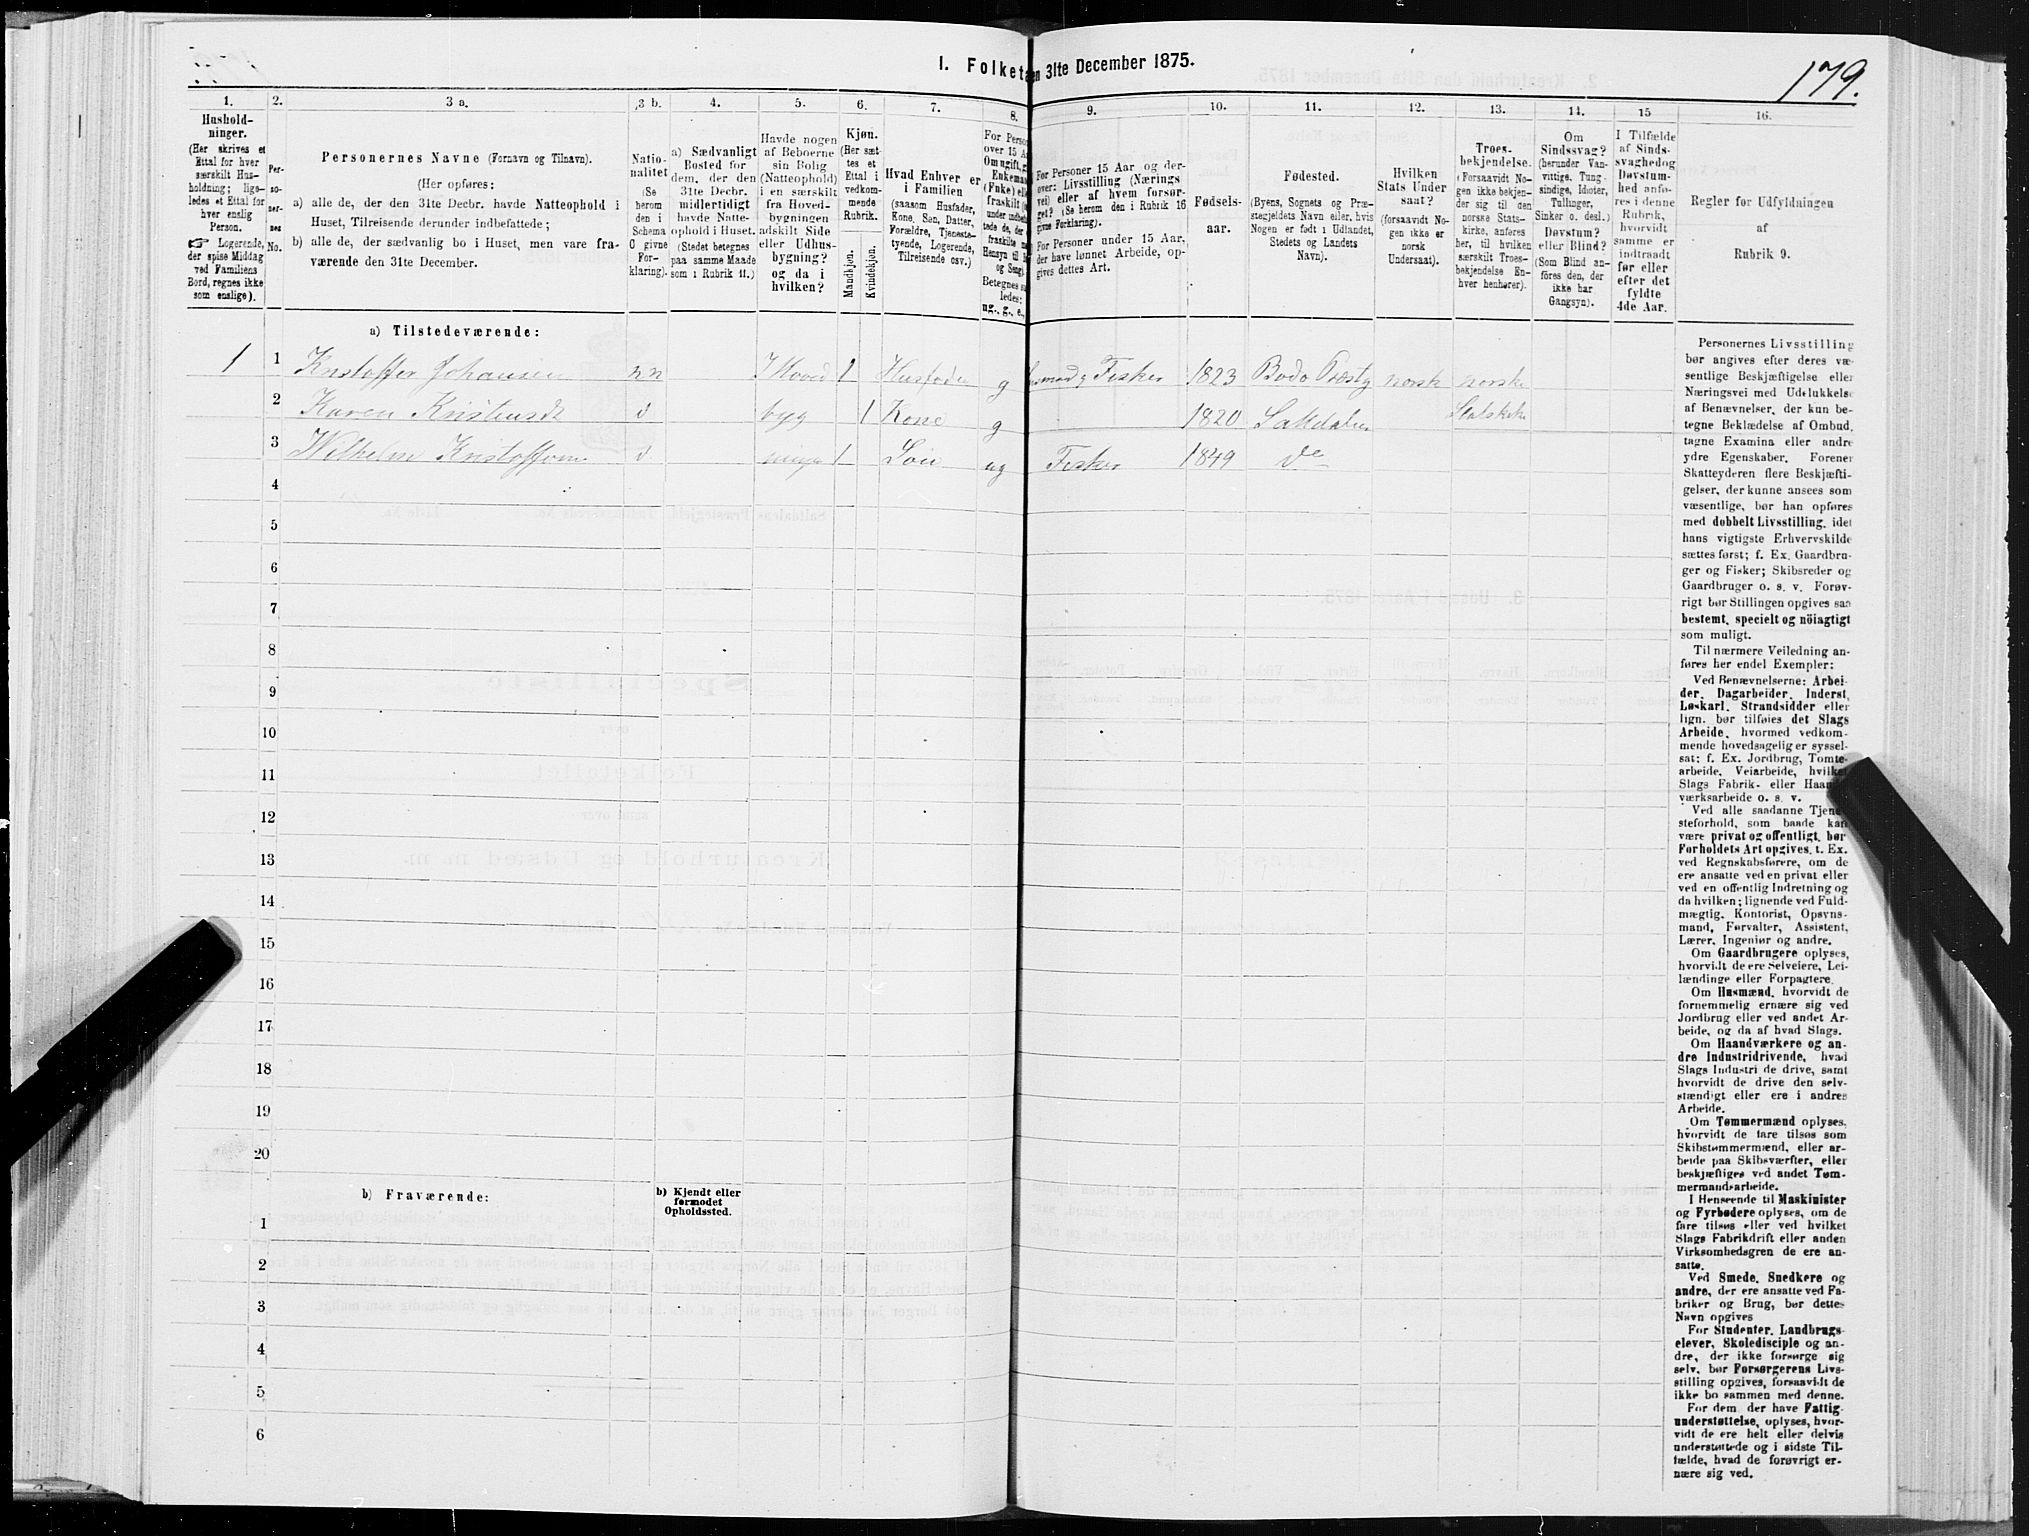 I. Folketæ en 31te December 1875.
179.
1. 2. 3 a. 3 b. 4. 5. 6. 7. 8. 9. 10. 11. 12. 13. 14. 15 16.
Hushold-
ninger.
(Her skrives et
Ettal for hver
særskilt Hus-
holdning; lige-
ledes et Ettal for
hver enslig
Person.
☞ Logerende,
der spise Middag
ved Familiens
Bord, regnes ikke
som enslige).
Per-
so-
ner-
nes
No.
Personernes Navne (Fornavn og Tilnavn).
(Her opføres:
a) alle de, der den 31te Decbr. havde Natteophold i
Huset, Tilreisende derunder indbefattede;
b) alle de, der sædvanlig bo i Huset, men vare fra-
værende den 31te December.
Natio-
nalitet
(Se
herom
den i
Schema
O givne
For-
klaring).
a) Sædvanligt
Bosted for
dem, der den
31te Decbr.
midlertidigt
havde Natte-
ophold i Huset.
(Stedet betegnes
paa samme Maade
som i Rubrik 11.)
Havde nogen
af Beboerne
sin Bolig
(Natteophold)
i en særskilt
fra Hoved-
bygningen
adskilt Side
eller Udhus-
bygning?
og da i
hvilken?
Kjøn.
(Her sæt-
tes et
Ettal i
vedkom-
mende
Rubrik.
Mandkjøn.
Kvindekjøn.
Hvad Enhver er
i Familien
(saasom Husfader,
Kone, Søn, Datter,
Forældre, Tjeneste-
tyende, Logerende,
Tilreisende osv.)
For Perso
over 15 A
Om ugift, g
Enkema
(Fnke) ell
fraskilt (
Betegnes s
ledes:
ug., g., e.,
For Personer 15 Aar og der-
over: Livsstilling (Nærings
vei) eller af hvem forsør-
get? (Se herom den i Rubrik 16
givne Forklaring).
For Personer under 15 Aar,
der have lønnet Arbeide, op-
gives dettes Art.
Fødsels-
aar.
Fødested.
(Byens, Sognets og Præ-
stegjeldets Navn eller, hvis
Nogen er født i Udlandet,
Stedets og Landets
Navn).
Hvilken
Stats Under
saat?
(forsaavidt No-
gen ikke er
norsk
Undersaat).
Troes-
bekjendelse.
(Forsaavidt No-
gen ikke bekjen-
der sig til den
norske Stats-
kirke, anføres
her, til hvilken
særskilt Troes-
bekjendelse En-
hver henhører).
Om
Sindssvag?
(herunder Van-
vittige, Tung-
sindige, Idioter,
Tullinger,
Sinker o. desl.)
Døvstum?
eller Blind?
(Som Blind an-
føres den, der
ikke har
Gangsyn).
I Tilfælde
af Sinds-
svaghed og
Døvstum-
hed anfø-
res i denne
Rubrik,
hvorvidt
samme er
indtraadt
før eller
efter det
fyldte
4de Aar.
Regler for Udfyldningen
af
Rubrik 9.
a) Tilstedeværende:
1 1 Kristoffer Johansen nn I Hoved 1 Husfader g Fisker 1823 Bodo Præstg norsk norske
2 Karen Kristensdt d byg 1 Kone g 1820 Saltdalen Statskirke
3 Wilhelm Kristoffersen d ningen 1 Søn ug Fisker 1849 de
4
5
6
7
8
9
10
11
12
13
14
15
16
17
18
19
20
b) Fraværende:
b) Kjendt eller
formodet
Opholdssted.
1
2
3
4
5
6
Personernes Livsstilling
bør angives efter deres væ-
sentlige Beskjæftigelse eller
Næringsvei med Udelukkelse
af Benævnelser, der kun be-
tegne Beklædelse af Ombud,
tagne Examina eller andre
ydre Egenskaber. Forener
Skatteyderen flere Beskjæfti-
gelser, der kunne ansees som
væsentlige, bør han opføres
med dobbelt Livsstilling, idet
hans vigtigste Erhvervskilde
sættes først; f. Ex. Gaardbru-
ger og Fisker; Skibsreder og
Gaardbruger o. s. v. Forøv-
rigt bør Stillingen opgives saa
bestemt, specielt og nöiagtigt
som muligt.
Til nærmere Veiledning an-
føres her endel Exempler:
Ved Benævnelserne: Arbei-
der, Dagarbeider, Inderst,
Løskarl, Strandsidder eller
lign. bør tilføies det Slags
Arbeide, hvormed vedkom-
mende hovedsagelig er syssel-
sat; f. Ex. Jordbrug, Tomte-
arbeide, Veiarbeide, hvilket
Slags Fabrik- eller Haand-
værksarbeide o. s. v.
Ved alle saadanne Tjene-
steforhold, som baade kan
være privat og offentligt, bør
Forholdets Art opgives, t. Ex.
ved Regnskabsførere, om de
ere ansatte ved en privat eller
ved en offentlig Indretning og
da hvilken; lignende ved Fuld-
mægtig, Kontorist, Opsyns-
mand, Forvalter, Assistent,
Lærer, Ingeniør og andre.
Om Gaardbrugere oplyses,
hvorvidt de ere Selveiere, Lei-
lændinge eller Forpagtere.
Om Husmænd, hvorvidt de
fornemmelig ernære sig ved
Jordbrug eller ved andet Ar-
beide, og da af hvad Slags.
Om Haandværkere og an-
dre Industridrivende, hvad
Slags Industri de drive, samt
hvorvidt de drive den selv-
stændigt eller ere i andres
Arbeide.
Om Tømmermænd oplyses,
hvorvidt de fare tilsøs som
Skibstømmermænd, eller ar-
beide paa Skibsværfter, eller
beskjæftiges ved andet Tøm-
mermandsarbeide.
I Henseende til Maskinister
og Fyrbødere oplyses, om de
fare tilsøs eller ved hvilket
Slags Fabrikdrift eller anden
Virksomhedsgren de ere an-
satte.
Ved Smede, Snedkere og
andre, der ere ansatte ved Fa-
briker og Brug, bør dettes
Navn opgives
For Studenter, Landbrugs-
elever, Skoledisciple og an-
dre, der ikke forsørge sig
selv, bør Forsørgerens Livs-
stilling opgives, forsaavidt de
ikke bo sammen med denne.
For dem der have Fattig-
understøttelse, oplyses, hvor-
vidt de ere helt eller delvis
understøttede og i sidste Til-
fælde, hvad de forøvrigt er-
nære sig ved.